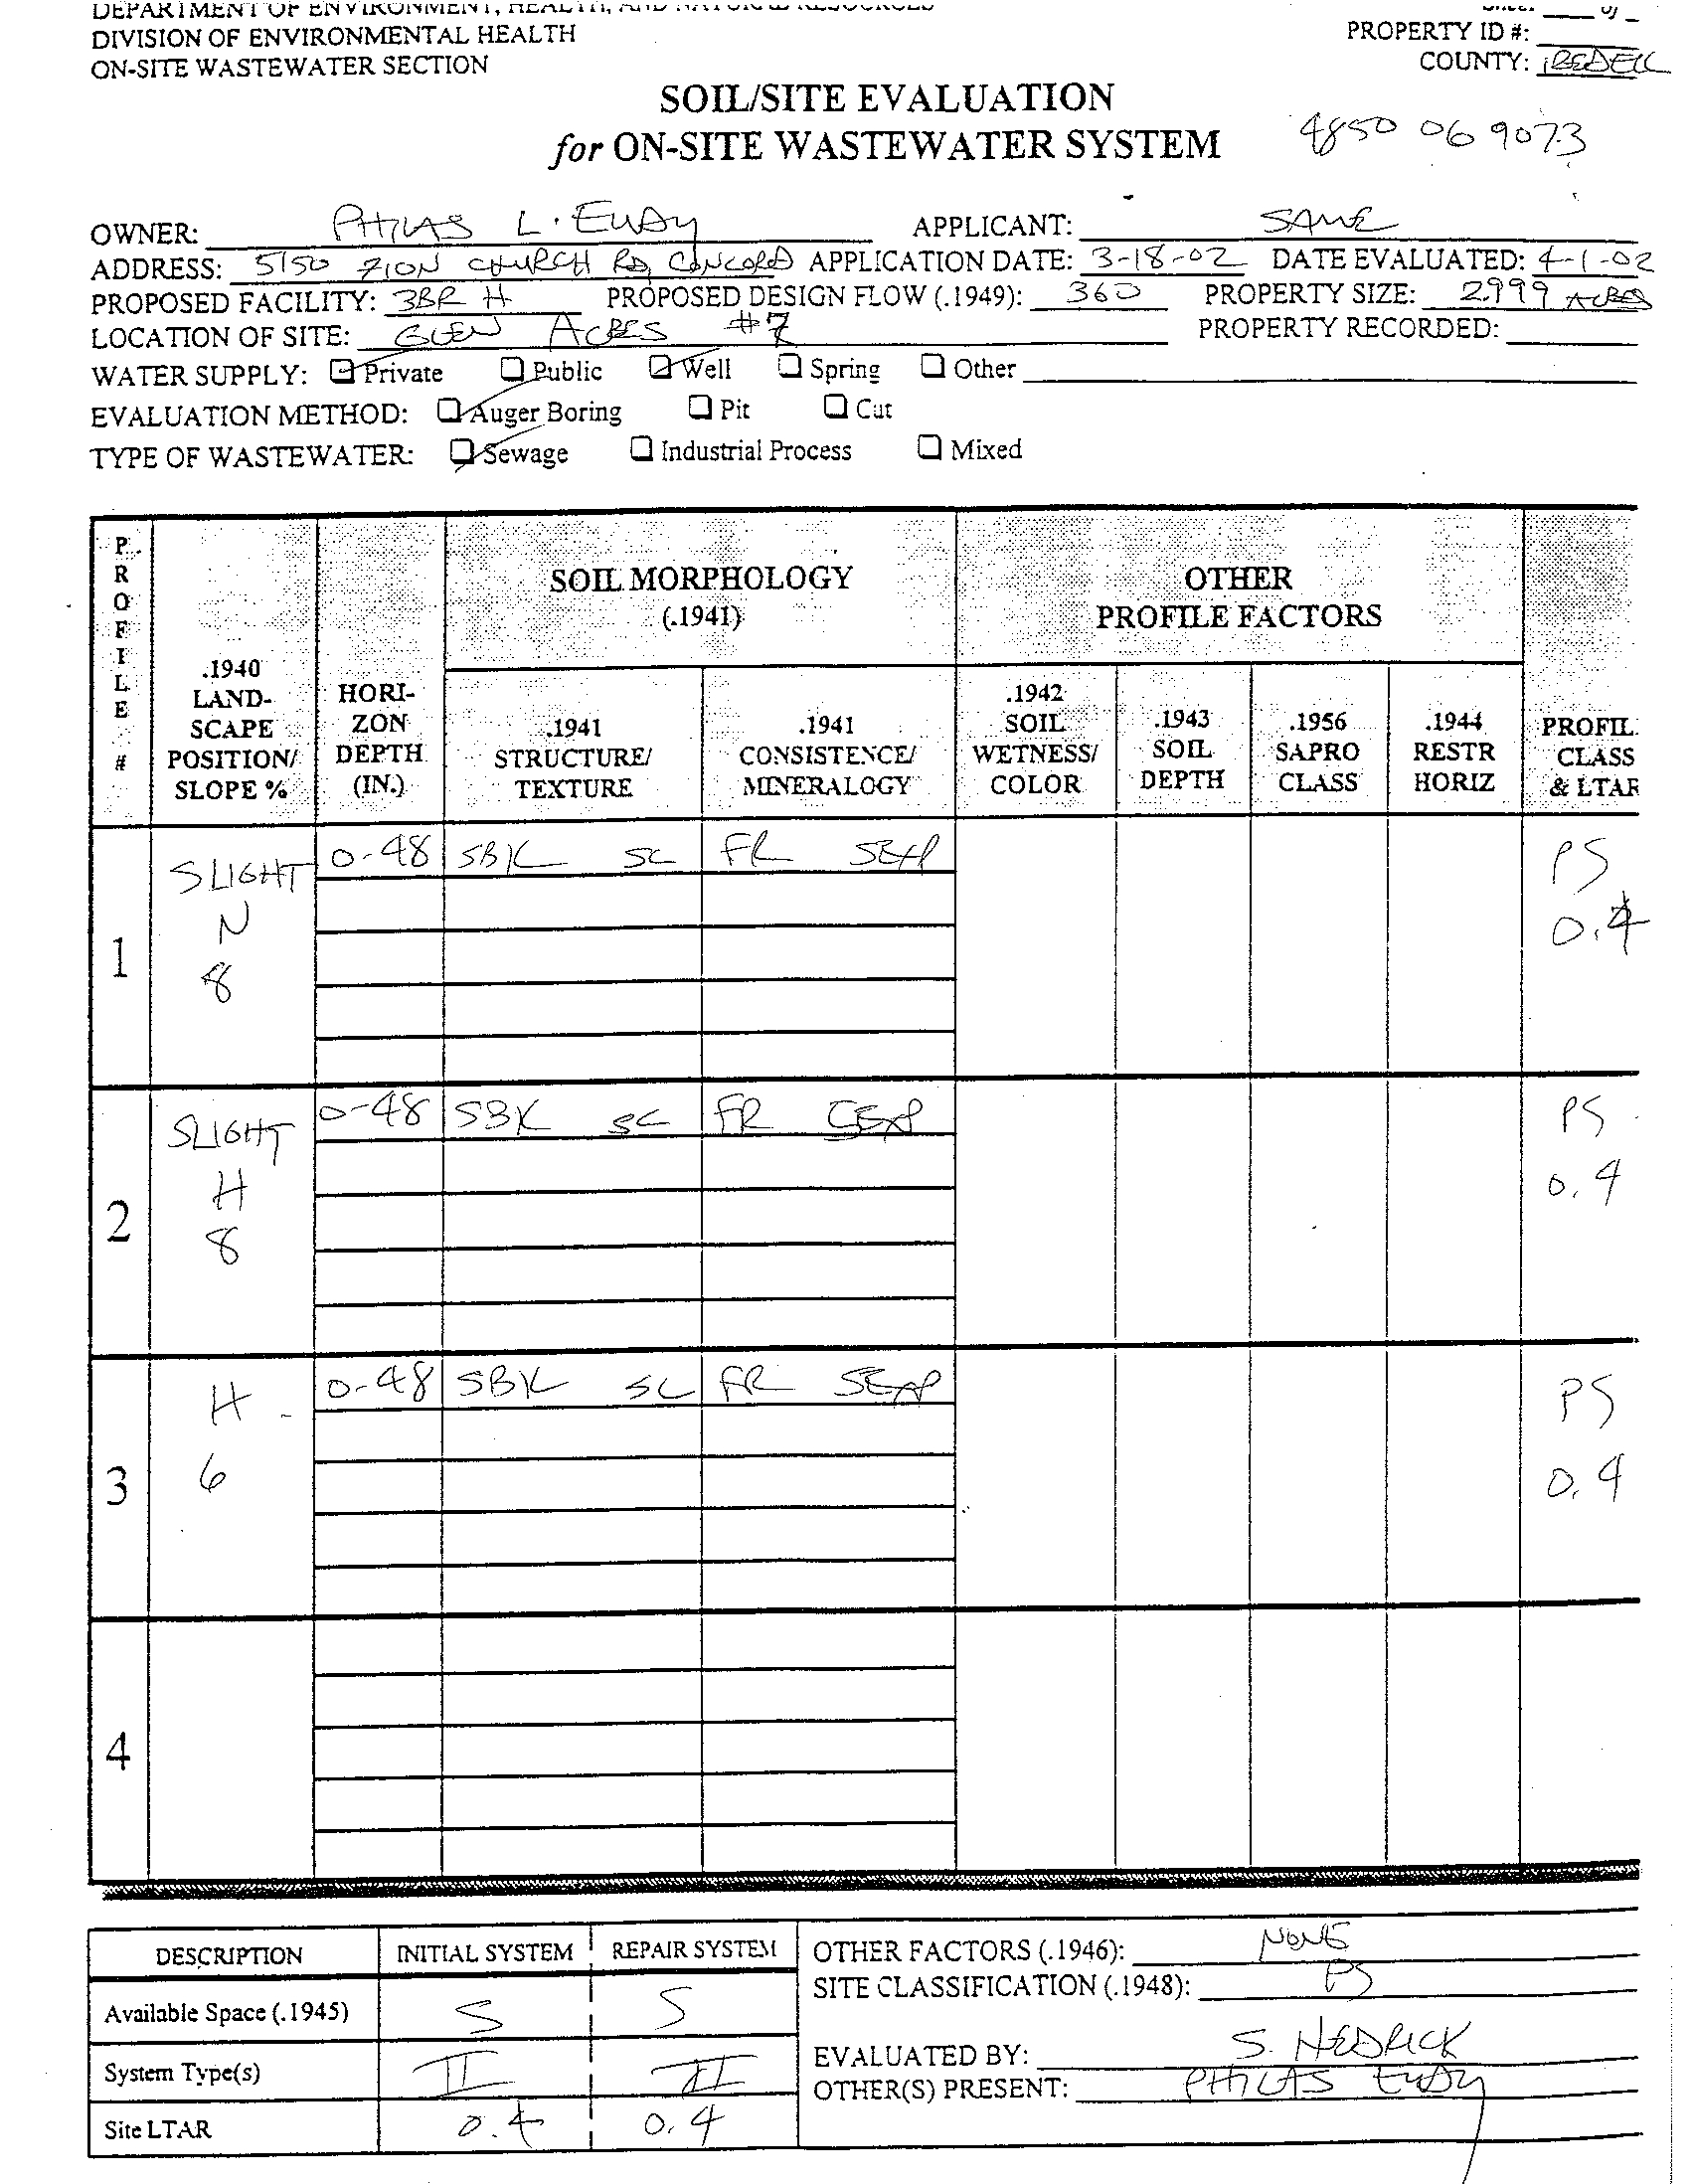 DEPARTMENT OF ENVIRONMENT, HEALTH, AND NATURAL RESOURCES
Sheet ___ of _
DIVISION OF ENVIRONMENTAL HEALTH
PROPERTY ID #:
ON-SITE WASTEWATER SECTION
COUNTY: IREDELL
SOIL/SITE EVALUATION
for ON-SITE WASTEWATER SYSTEM
4850 06 9073
OWNER: PHILAS L. EUDY APPLICANT: SAME
ADDRESS: 5150 ZION CHURCH RD, CONCORD APPLICATION DATE: 3-18-02 DATE EVALUATED: 4-1-02
PROPOSED FACILITY: 3BR H PROPOSED DESIGN FLOW (.1949): 360 PROPERTY SIZE: 2.999 ACRES
LOCATION OF SITE: GLEN ACRES #7 PROPERTY RECORDED:
WATER SUPPLY: Private Public Well Spring Other
EVALUATION METHOD: Auger Boring Pit Cut
TYPE OF WASTEWATER: Sewage Industrial Process Mixed
PROFILE #
.1940 LAND-SCAPE POSITION/ SLOPE %
HORI-ZON DEPTH (IN.)
SOIL MORPHOLOGY (.1941)
.1941 STRUCTURE/ TEXTURE
.1941 CONSISTENCE/ MINERALOGY
OTHER PROFILE FACTORS
.1942 SOIL WETNESS/ COLOR
.1943 SOIL DEPTH
.1956 SAPRO CLASS
.1944 RESTR HORIZ
PROFIL CLASS & LTAR
1 SLIGHT N 8 0-48 SBK SC FR SEXP PS 0.4
2 SLIGHT H 8 0-48 SBK SC FR SEXP PS 0.4
3 H 6 0-48 SBK SC FR SEXP PS 0.4
4
DESCRIPTION INITIAL SYSTEM REPAIR SYSTEM
Available Space (.1945) S S
System Type(s) II II
Site LTAR 0.4 0.4
OTHER FACTORS (.1946): NONE
SITE CLASSIFICATION (.1948): PS
EVALUATED BY: S. HEDRICK
OTHER(S) PRESENT: PHILAS EUDY